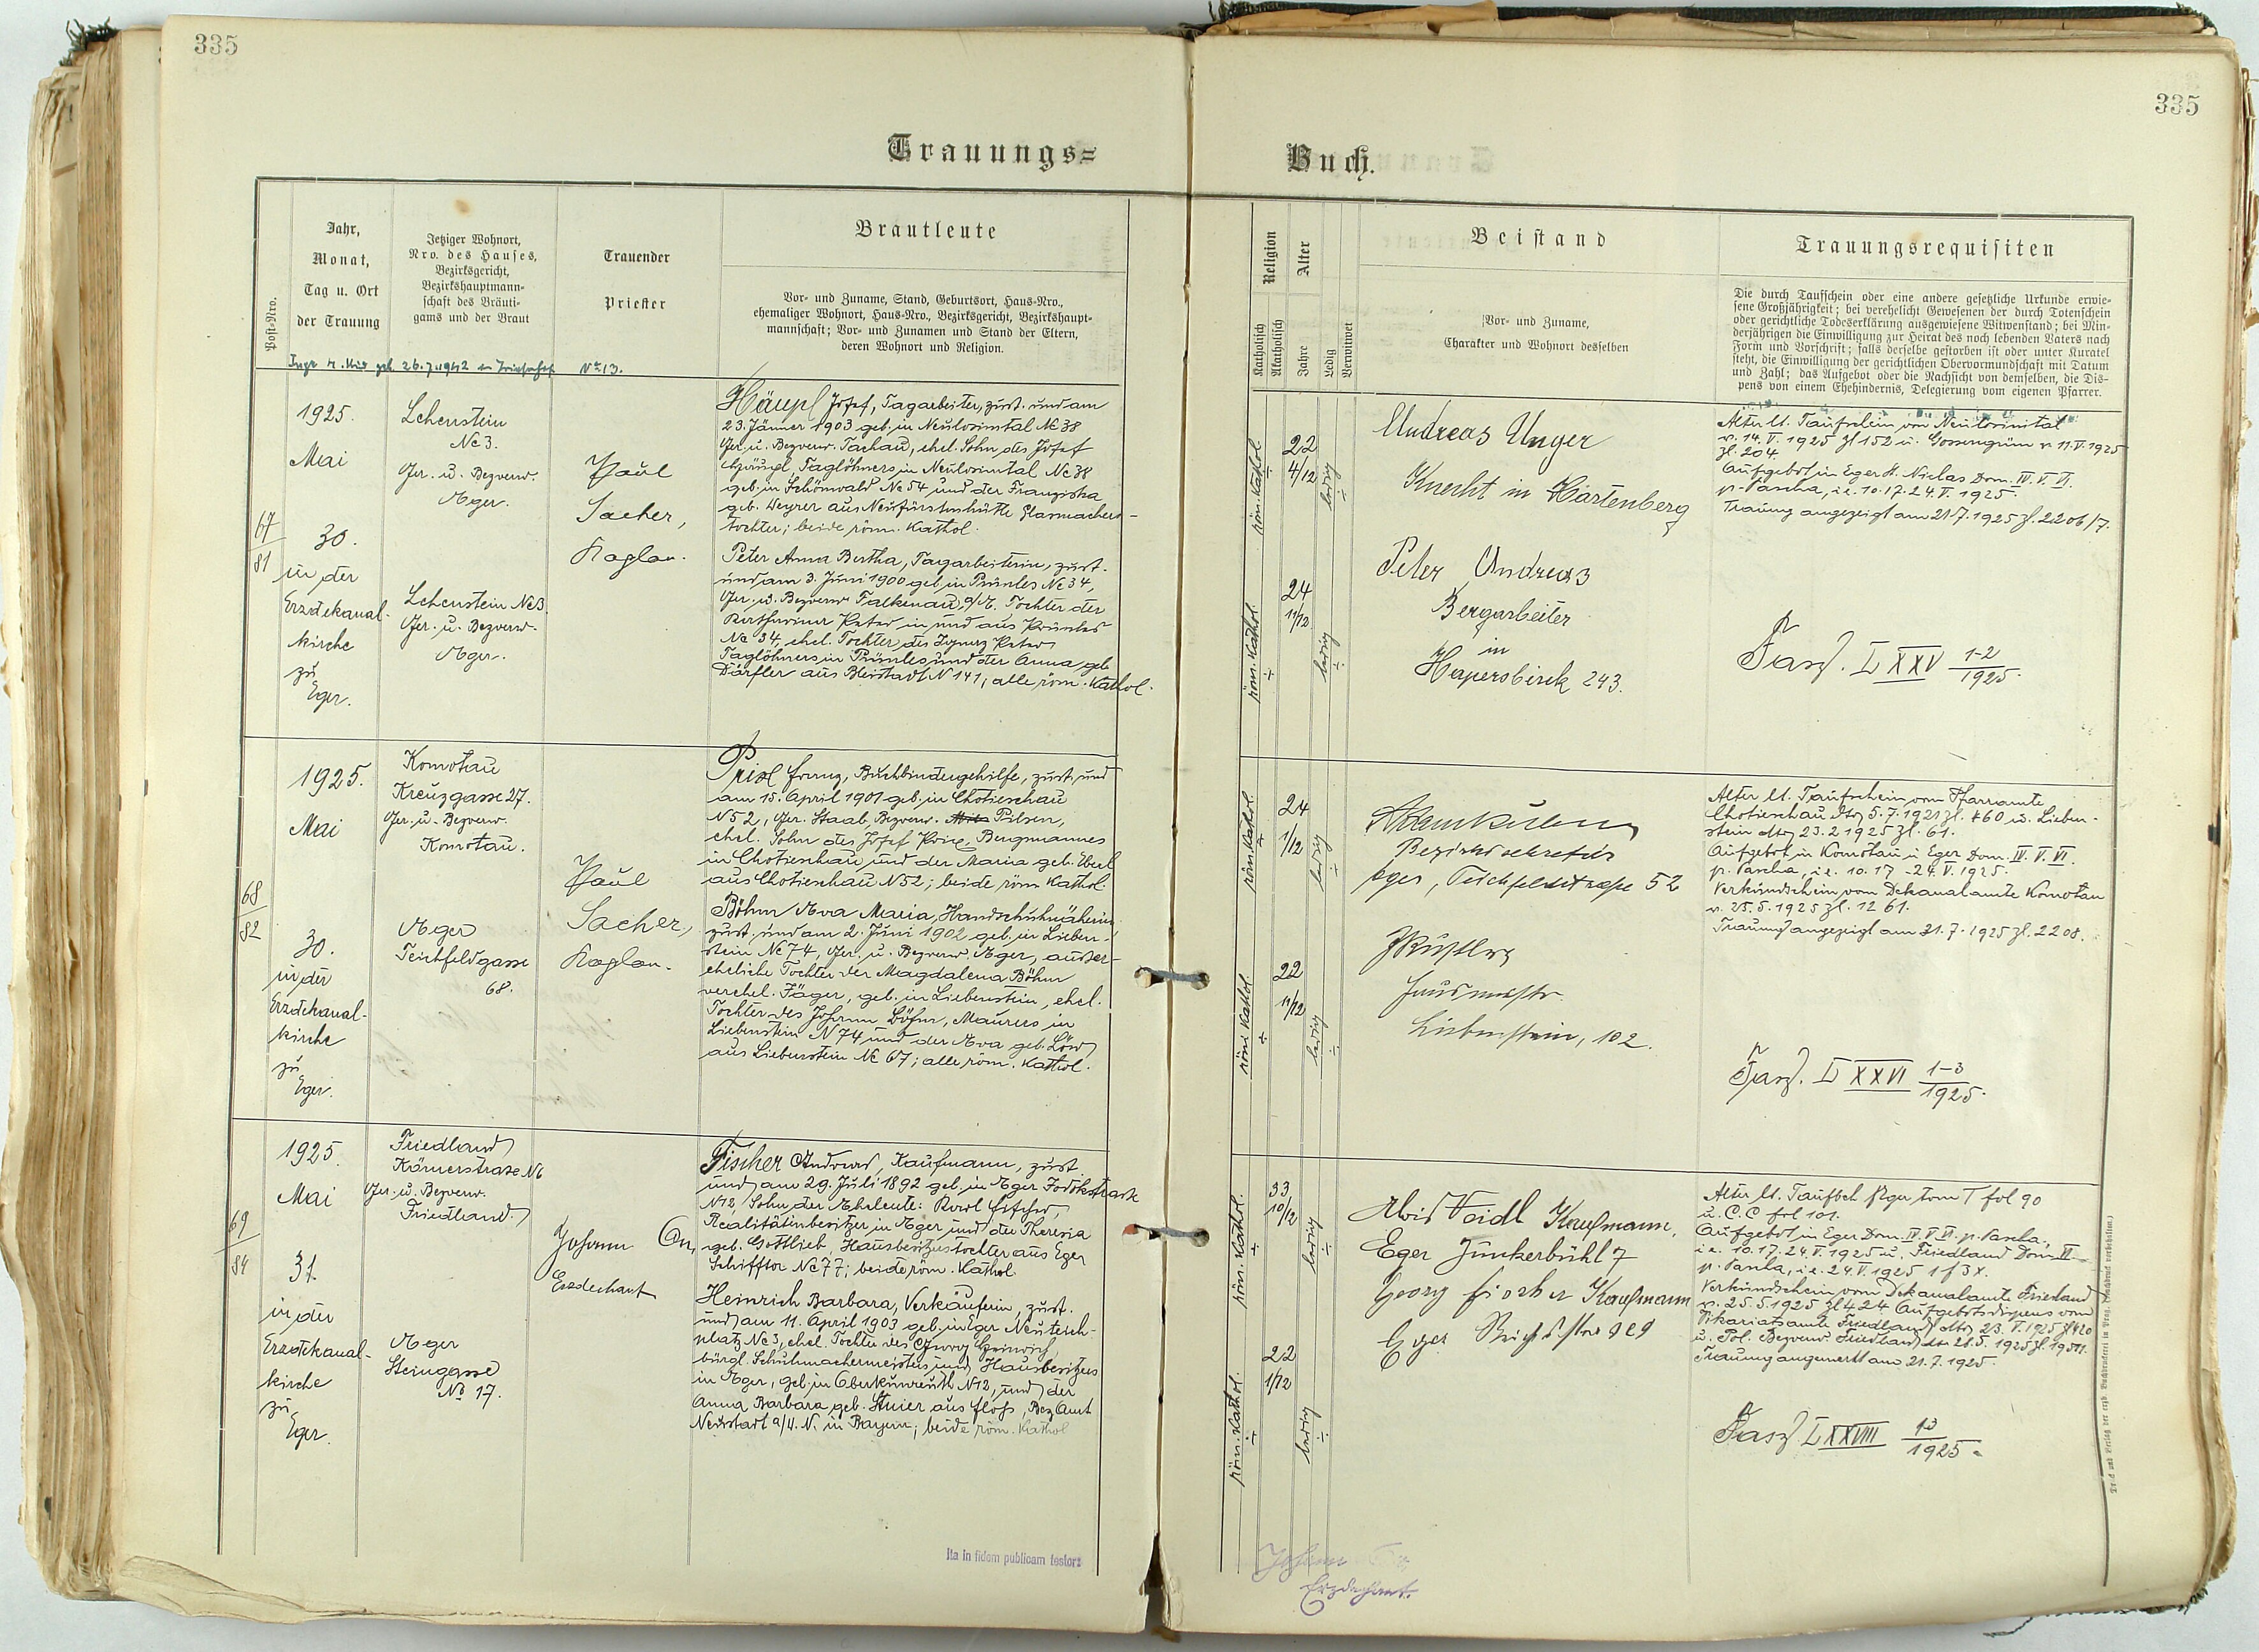 335
335
Trauungs=
Buch.
Post-Nro.
Jahr,
Monat,
Tag u. Ort
der Trauung
Jetziger Wohnort,
Nro. des Hauses,
Bezirksgericht,
Bezirkshauptmann-
schaft des Bräuti-
gams und der Braut
Trauender
Priester
Brautleute
Vor- und Zuname, Stand, Geburtsort, Haus-Nro.,
ehemaliger Wohnort, Haus-Nro., Bezirksgericht, Bezirkshaupt-
mannschaft; Vor- und Zunamen und Stand der Eltern,
deren Wohnort und Religion.
Religion
Katholisch
Akatholisch
Alter
Jahre
Ledig
Verwitwet
Beistand
Vor- und Zuname,
Charakter und Wohnort desselben
Trauungsrequisiten
Die durch Taufschein oder eine andere gesetzliche Urkunde erwie-
sene Großjährigkeit; bei verehelicht Gewesenen der durch Totenschein
oder gerichtliche Todeserklärung ausgewiesene Witwenstand; bei Min-
derjährigen die Einwilligung zur Heirat des noch lebenden Vaters nach
Form und Vorschrift; falls derselbe gestorben ist oder unter Kuratel
steht, die Einwilligung der gerichtlichen Obervormundschaft mit Datum
und Zahl; das Aufgebot oder die Nachsicht von demselben, die Dis-
pens von einem Ehehindernis, Delegierung vom eigenen Pfarrer.
geb. 26.7.1942 in No 13.
67
81
1925.
Mai
30.
in der
Erzdekanal-
kirche
zu
Eger.
Lehenstein
No 3.
Ger. u. Bezverw.
Eger.
Lehenstein No 3
Ger. u. Bezverw.
Eger.
Paul
Sacher,
Kaplan.
Häupl Josef, Tagarbeiter, zust. und am
23. Jänner 1903 geb. in Neulosimtal No 38
Ger. u. Bezverw. Tachau, ehel. Sohn des Josef
Häupl, Taglöhners in Neulosimtal No 38
geb. in Schönwald No 54 und der Franziska
geb. Weyrer aus Neufürstenhütte Glasmachers-
tochter; beide röm. kathol.
Peter Anna Bertha, Tagarbeiterin, zust.
und am 3. Juni 1900 geb. in Prünles No 34,
Ger. u. Bezverw. Falkenau a/E. Tochter der
Peter in und aus Prünles
No 34, ehel. Tochter des Ignaz Peter
Taglöhners in Prünles und der Anna geb.
Dörfler aus Bleistadt N 141; alle röm. kathol.
röm. kathol.
22
4/12
ledig
röm. kathol.
24
11/12
ledig
Andreas Unger
Knecht in Hartenberg
Peter Andreas
Bergarbeiter
in
Habersbirk 243.
Alter lt. Taufschein von Neulosimtal
v. 14. V. 1925 Zl 152 u. Gossengrün v. 11. V. 1925
Zl. 204.
Aufgebot in Eger St. Niclas Dom. IV. V. VI.
p. Pascha, i.e. 10. 17. 24. V. 1925.
Trauung angezeigt am 21.7.1925 Zl. 2206/7.
Fasz. LXXV 1-2
1925.
68
82
1925.
Mai
30.
in der
Erzdekanal-
kirche
zu
Eger.
Komotau
Kreuzgasse 27.
Ger. u. Bezverw.
Komotau.
Eger
Teichfeldgasse
68.
Paul
Sacher,
Kaplan.
Prixl Franz, Buchbindergehilfe, zust. und
am 15. April 1901 geb. in Chotieschau
N 52, Ger. Staab, Bezverw. Pilsen,
ehel. Sohn des Josef Bergmannes
in Chotieschau und der Maria geb. Überl
aus Chotieschau N 52; beide röm. kathol.
Böhm Eva Maria, Handschuhnäherin
zust. und am 2. Juni 1902 geb. in Lieben-
stein No 74, Ger. u. Bezverw. Eger, außer-
eheliche Tochter der Magdalena Böhm
verehel. Jäger, geb. in Liebenstein, ehel.
Tochter des Johann Böhm, Maurers in
Liebenstein N 74 und der Eva geb. Löw
aus Liebenstein No 67; alle röm. kathol.
röm. kathol.
24
1/12
ledig
röm. kathol.
22
11/12
ledig
Bezirkssekretär
Eger, Teichfeldstraße 52
Hausmeister
Liebenstein, 102.
Alter lt. Taufschein vom Pfarramte
Chotieschau dto 5.7.1921 Zl. 460 u. Lieben-
stein dto 23.2.1925 Zl. 61.
Aufgebot in Komotau u. Eger Dom. IV. V. VI.
p. Pascha, i.e. 10. 17 - 24. V. 1925.
Verkündschein vom Dekanalamte Komotau
v. 25.5.1925 Zl. 1261.
Trauung angezeigt am 21.7.1925 Zl. 2208.
Fasz. LXXVI 1-3
1925.
69
84
1925.
Mai
31.
in der
Erzdekanal-
kirche
zu
Eger.
Friedland
Körnerstraße N 6
Ger. u. Bezverw.
Friedland.
Eger
Steingasse
No 17.
Johann
Erzdechant
Fischer Andreas, Kaufmann, zust.
und am 29. Juli 1892 geb. in Eger Jodokstraße
N 12, Sohn der Eheleute: Karl Fischer,
Realitätenbesitzer in Eger und der Theresia
geb. Gottlieb, Hausbesitzerstochter aus Eger
Schifftor No 77; beide röm. kathol.
Heinrich Barbara, Verkäuferin, zust.
und am 11. April 1903 geb. in Eger Neuteich-
platz No 3, ehel. Tochter des Georg Heinrich,
bürgl. Schuhmachermeisters und Hausbesitzers
in Eger, geb. in Oberkunreuth N 12, und der
Anna Barbara geb. aus Floss, Bez Amt
Neustadt a/W. N. in Bayern; beide röm. kathol
röm. kathol.
33
10/12
ledig
röm. kathol.
22
1/12
ledig
Alois Voidl Kaufmann,
Eger Junkerbühl 7
Georg Fischer Kaufmann
Eger
Alter lt. Taufbch Eger tom T fol 90
u. C.C fol 101.
Aufgebot in Eger Dom. IV. V. VI. p. Pascha,
i.e. 10. 17. 24. V. 1925 u. Friedland Dom. VI
p. Pascha, i.e. 24. V. 1925
Verkündschein vom Dekanalamte Friedland
v. 25.5.1925 Zl 424 Aufgebotsdispens vom
Vikariatsamte Friedland dto 23. V. 1925 Zl 420
u. Pol. Bezverw. Friedland
Trauung angemerkt am 21.7.1925.
Fasz. LXXVIII 1-3
1925.
Ita in fidem publicam testor:
Johann
Erzdechant.